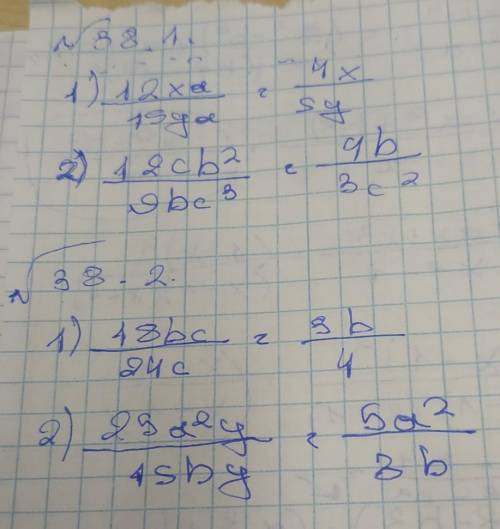 № 38.1.
1) 12xa/15ya = 4x/5y
2) 12cb²/9bc³ = 4b/3c²
№ 38.2.
1) 18bc/24c = 3b/4
2) 25a²y/15by = 5a²/3b